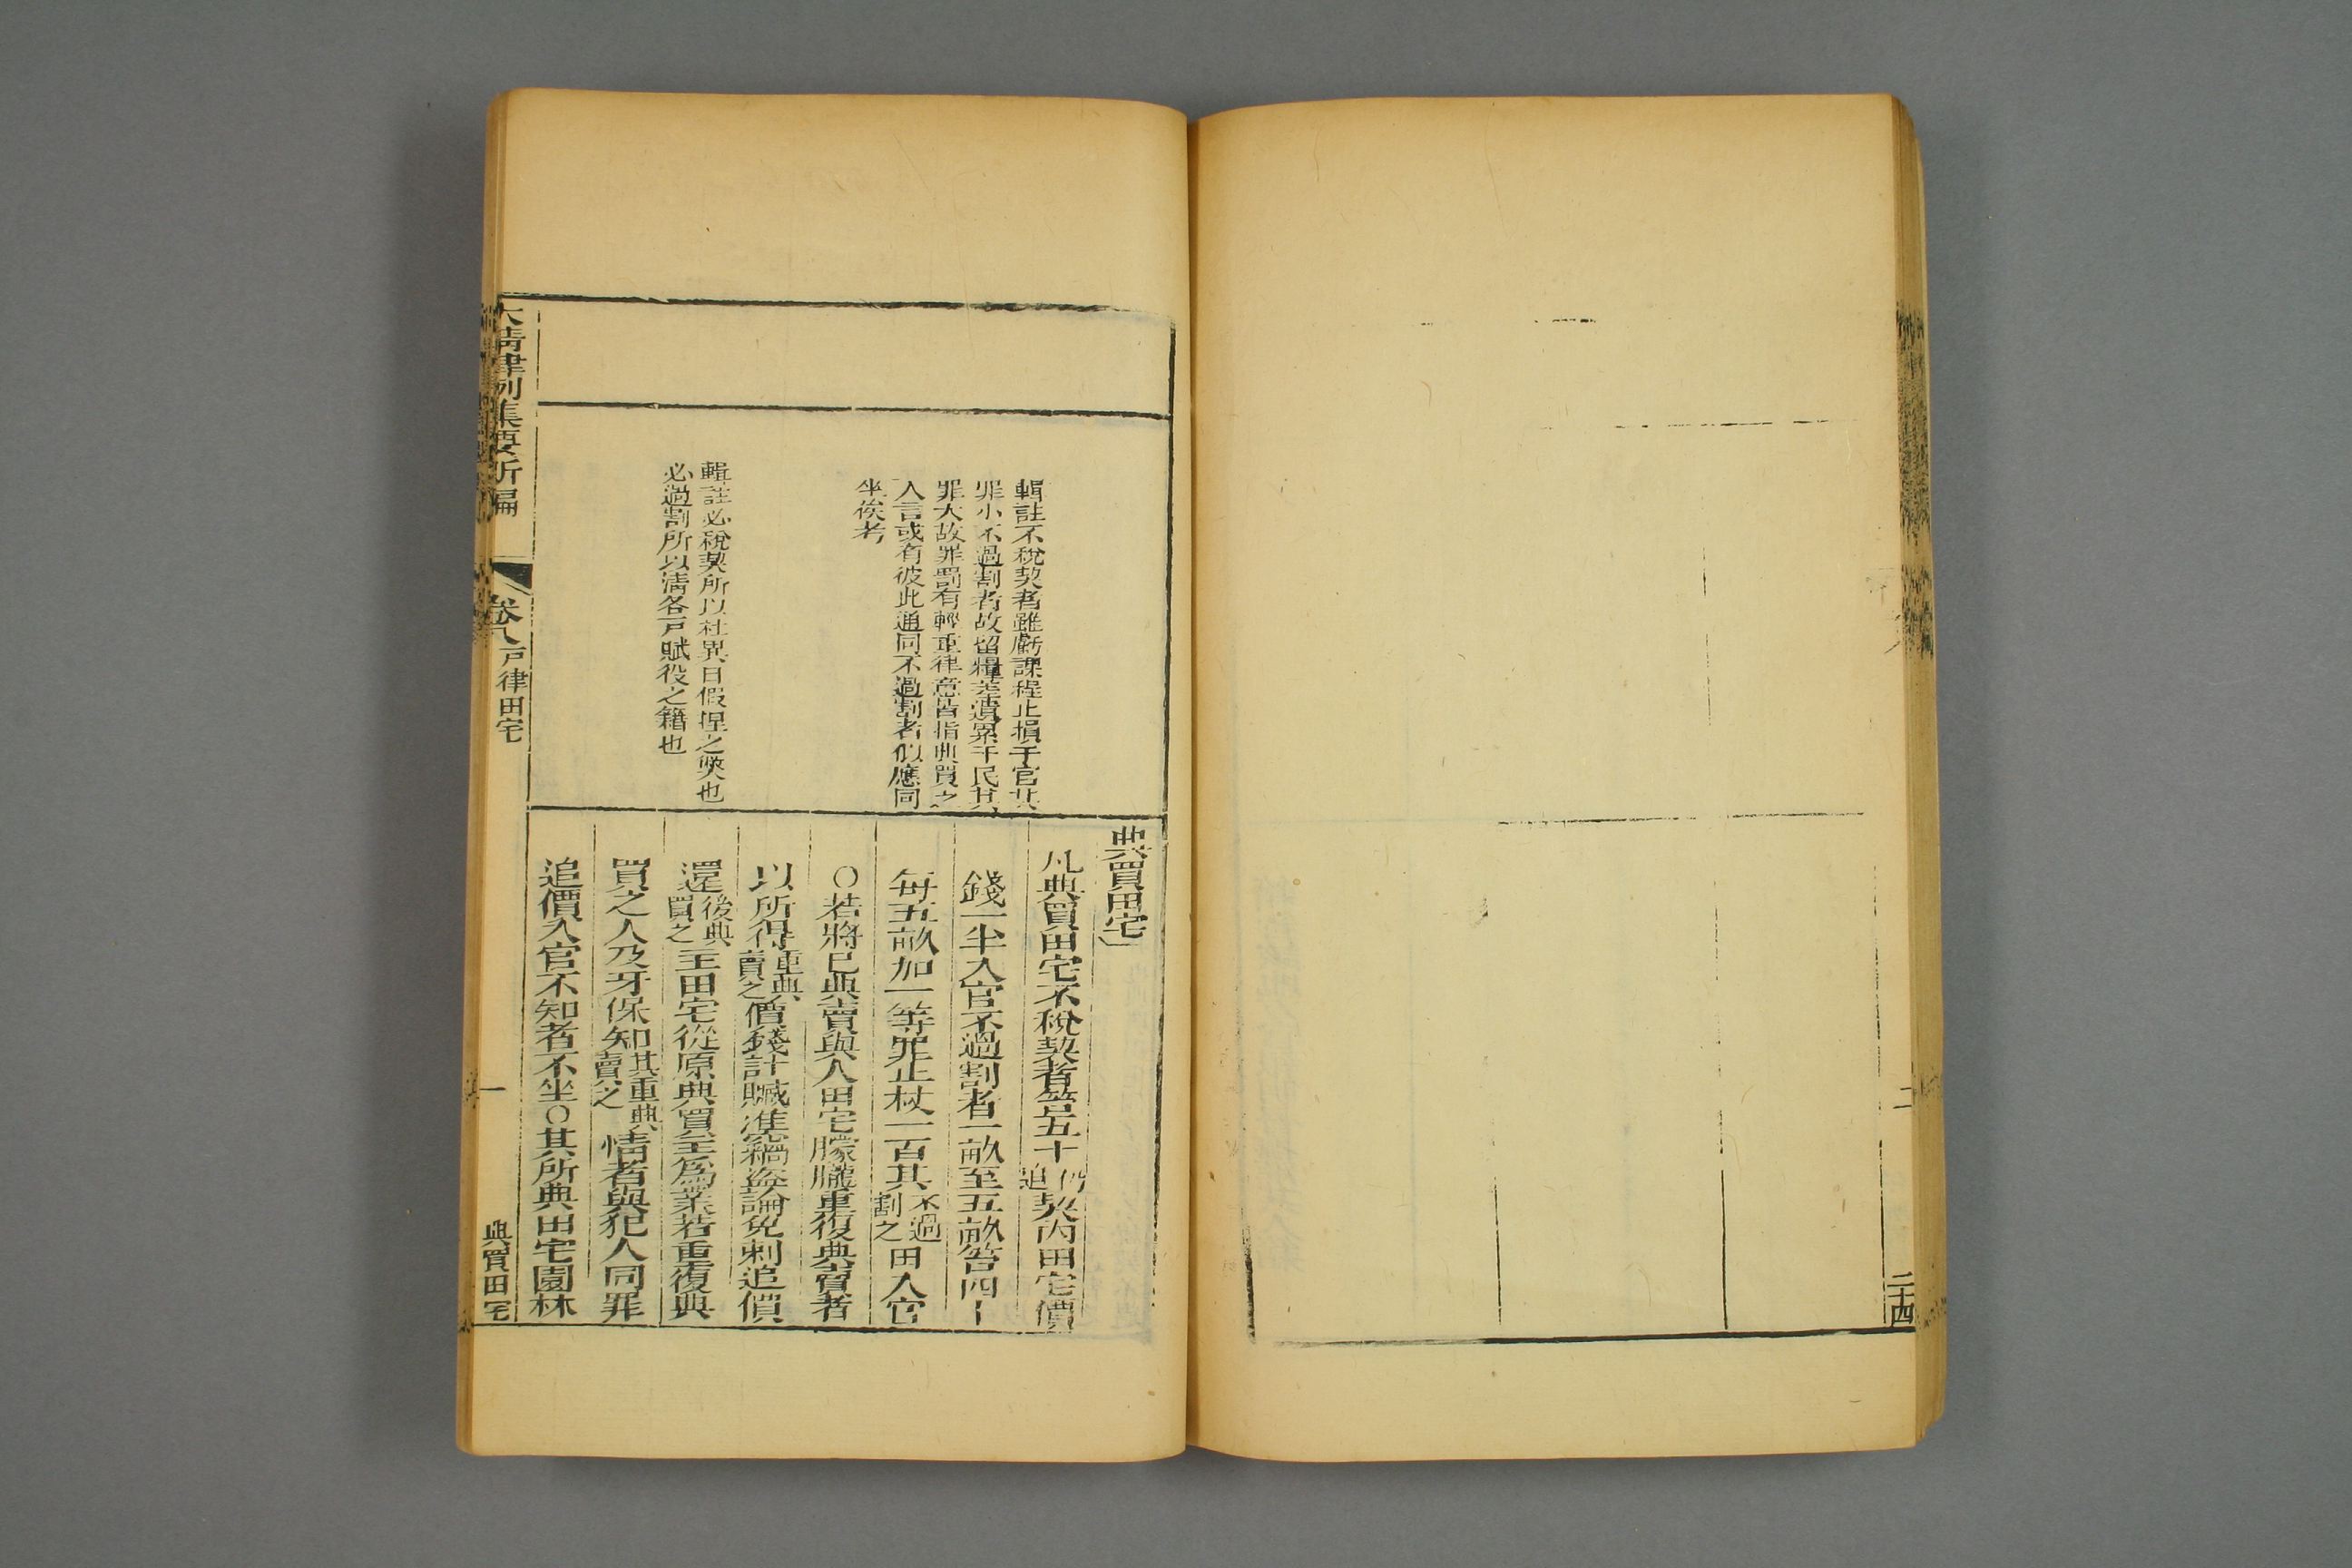 二
二十四
輯註不稅契者雖虧課程止損于官其
罪小不過割者故留糧差遺累于民其
罪大故罪罰有輕重律意皆指典買之
人言或有彼此通同不過割者似應同
坐俟考
輯註必稅契所以杜異日假捏之獘也
必過割所以清各戶賦役之籍也
典買田宅
凡典買田宅不稅契者笞五十仍追契內田宅價
錢一半入官不過割者一畝至五畝笞四十
每五畝加一等罪止杖一百其不過割之田入官
○若將已典賣與人田宅朦朧重復典賣者
以所得重典賣之價錢計贓准竊盜論免刺追價
還後典買之主田宅從原典買主為業若重復典
買之人及牙保知其重典賣之情者與犯人同罪
追價入官不知者不坐○其所典田宅園林
大清律例集要新編
卷八戶律田宅
一
典買田宅